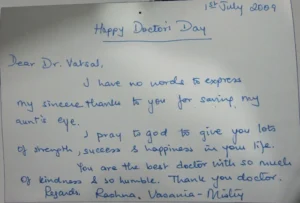 1st July 2009
Happy Doctor's Day
Dear Dr. Vatsal,
I have no words to express
my sincere thanks to you for saving my
aunt's eye.
I pray to god to give you lots
of strength, success & happiness in your life.
You are the best doctor with so much
of kindness & so humble. Thank you doctor.
Regards Rachna, Vacania - Misty